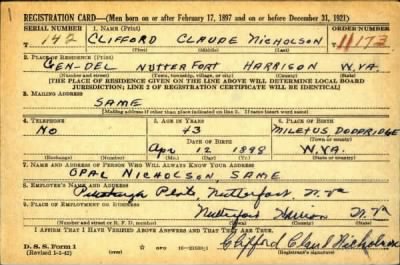 REGISTRATION CARD—(Men born on or after February 17, 1897 and on or before December 31, 1921)
SERIAL NUMBER 1. NAME (Print) ORDER NUMBER
T 142 CLIFFORD CLAUDE NICHOLSON 11173
(First) (Middle) (Last)
2. PLACE OF RESIDENCE (Print)
GEN-DEL NUTTER FORT HARRISON W.VA.
(Number and street) (Town, township, village, or city) (County) (State)
[THE PLACE OF RESIDENCE GIVEN ON THE LINE ABOVE WILL DETERMINE LOCAL BOARD
JURISDICTION; LINE 2 OF REGISTRATION CERTIFICATE WILL BE IDENTICAL]
3. MAILING ADDRESS
SAME
[Mailing address if other than place indicated on line 2. If same insert word same]
4. TELEPHONE 5. AGE IN YEARS 6. PLACE OF BIRTH
NO 43 MILETUS DODDRIDGE
DATE OF BIRTH (Town or county)
Apr 12 1898 W.VA.
(Exchange) (Number) (Mo.) (Day) (Yr.) (State or country)
7. NAME AND ADDRESS OF PERSON WHO WILL ALWAYS KNOW YOUR ADDRESS
OPAL NICHOLSON, SAME
8. EMPLOYER'S NAME AND ADDRESS
Nutterfort W. Va
9. PLACE OF EMPLOYMENT OR BUSINESS
Nutterfort W. Va
(Number and street or R. F. D. number) (Town) (County) (State)
I AFFIRM THAT I HAVE VERIFIED ABOVE ANSWERS AND THAT THEY ARE TRUE.
D. S. S. Form 1
(Revised 1-1-42) (over)
Clifford Claud Nicholson